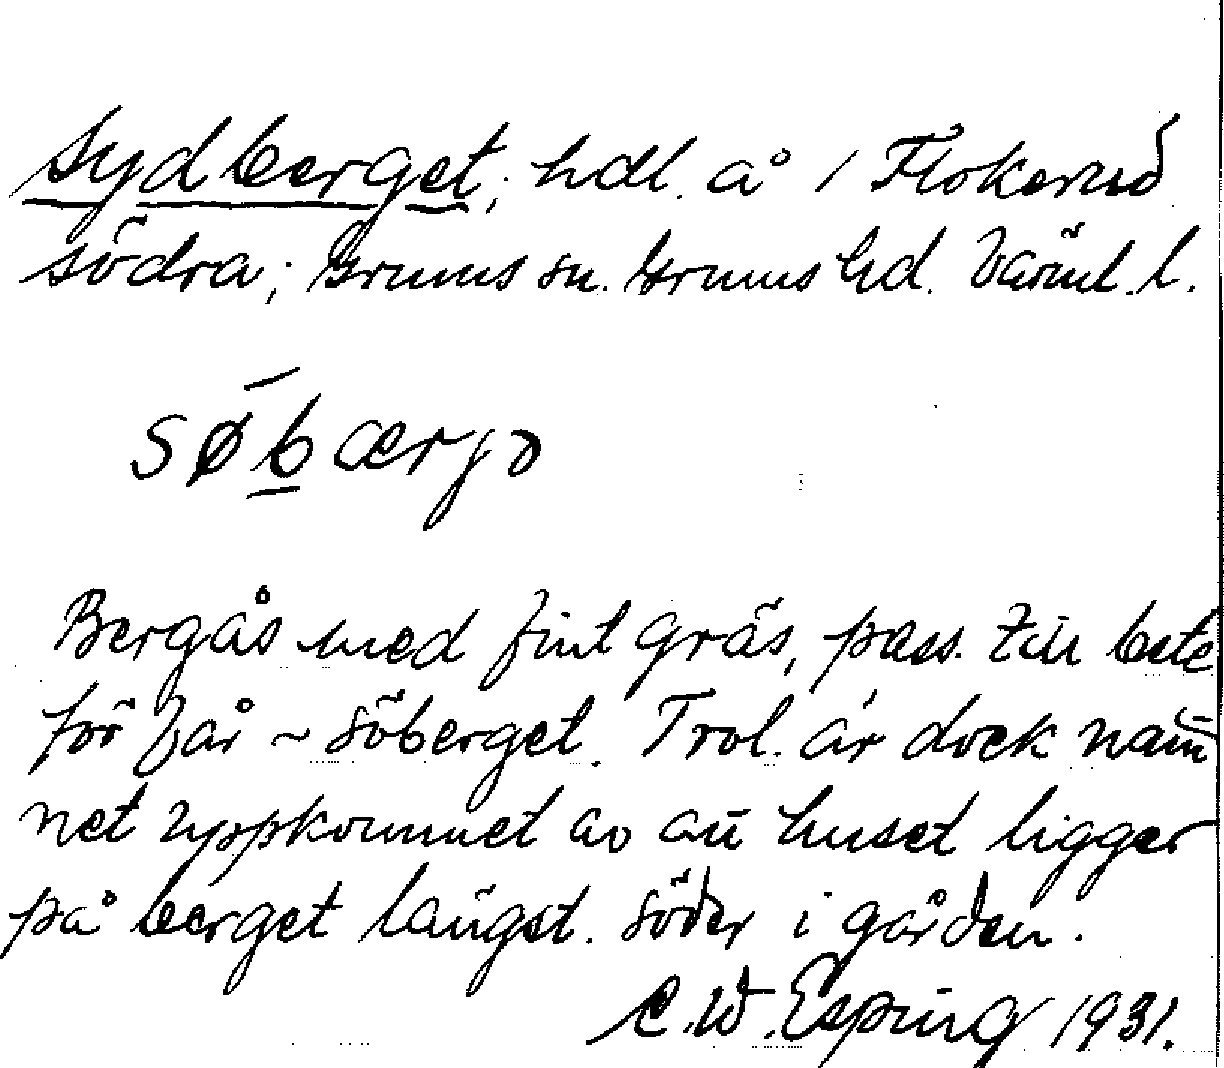 Sydberget; hdl. å 1/ Flokerud
södra; Grums sn. Grums hd. Värml. l.
søbærjə
Bergås med fint gräs, pass. till bete
för får ~ söberget. Trol. är dock nam̄
net uppkommet av att huset ligger
på berget längst. söder i gården.
C.W. Esping 1931.